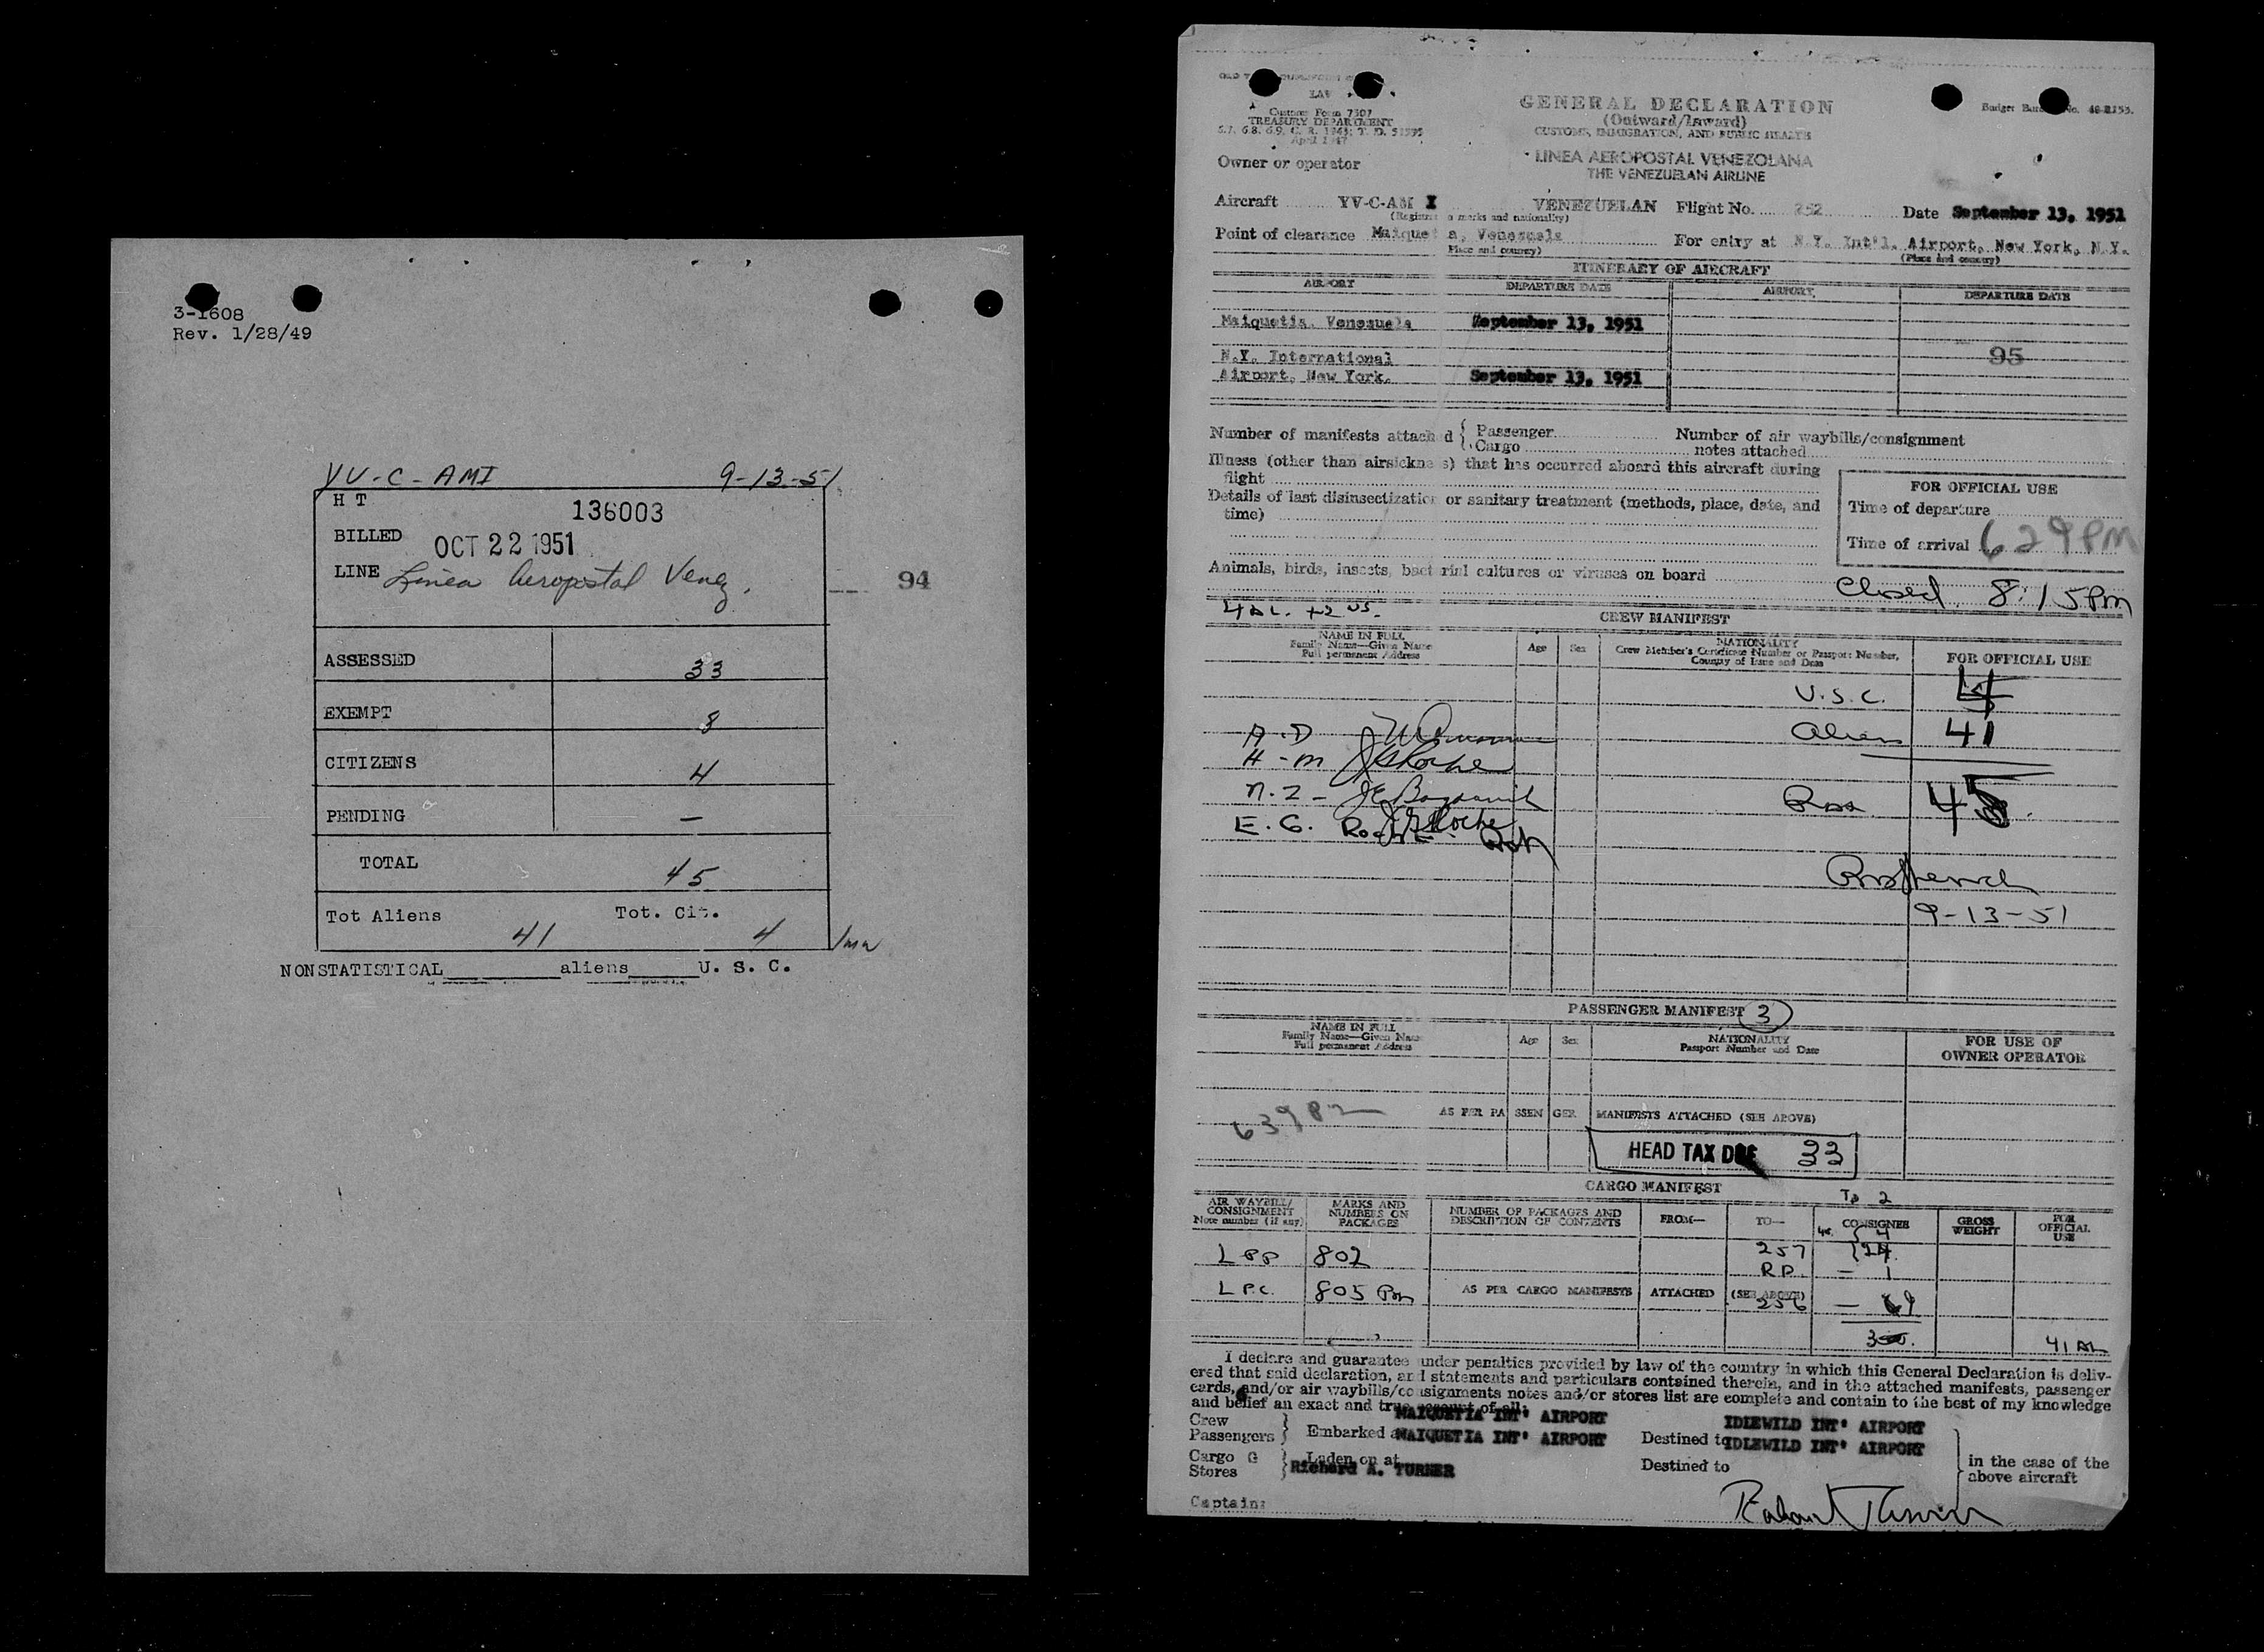 3-1608
Rev. 1/28/49
YV-C-AMI 9-13-51
H T 136003
BILLED OCT 22 1951
LINE Linea Aeropostal Venez.
94
ASSESSED 33
EXEMPT 8
CITIZENS 4
PENDING —
TOTAL 45
Tot Aliens 41 Tot. Cit. 4
NONSTATISTICAL aliens U. S. C.
Customs Form 7507
TREASURY DEPARTMENT
April 1947
GENERAL DECLARATION
(Outward/Inward)
CUSTOMS, IMMIGRATION, AND PUBLIC HEALTH
Owner or operator
LINEA AEROPOSTAL VENEZOLANA
THE VENEZUELAN AIRLINE
Aircraft YV-C-AM I VENEZUELAN Flight No. 252 Date September 13, 1951
Point of clearance Maiquetia, Venezuela For entry at N.Y. Int'l. Airport, New York, N.Y.
(Place and country) (Place and country)
ITINERARY OF AIRCRAFT
AIRPORT DEPARTURE DATE AIRPORT DEPARTURE DATE
Maiquetia, Venezuela September 13, 1951
95
N.Y. International
Airport, New York. September 13, 1951
Number of manifests attached { Passenger
Cargo
Number of air waybills/consignment
notes attached
Illness (other than airsickness) that has occurred aboard this aircraft during
flight
Details of last disinsectization or sanitary treatment (methods, place, date, and
time)
FOR OFFICIAL USE
Time of departure
Time of arrival 629 PM
Animals, birds, insects, bacterial cultures or viruses on board
Closed 8:15 PM
4 AL. +2 US.
CREW MANIFEST
NAME IN FULL
Family Name—Given Name
Full permanent Address
Age Sex
NATIONALITY
Crew Member's Certificate Number or Passport Number,
Country of Issue and Date
FOR OFFICIAL USE
U.S.C. 4
Aliens 41
A-D
H-M
N-Z
E.G. Roche
45
9-13-51
PASSENGER MANIFEST 3
NAME IN FULL
Family Name—Given Name
Full permanent Address
Age Sex
NATIONALITY
Passport Number and Date
FOR USE OF
OWNER OPERATOR
63982
AS PER PASSENGER MANIFESTS ATTACHED (SEE ABOVE)
HEAD TAX DUE 33
CARGO MANIFEST
AIR WAYBILL/
CONSIGNMENT
Note number (if any)
MARKS AND
NUMBERS ON
PACKAGES
NUMBER OF PACKAGES AND
DESCRIPTION OF CONTENTS
FROM— TO— CONSIGNEE
GROSS
WEIGHT
FOR
OFFICIAL
USE
802 257 24
RP. — 1
805
AS PER CARGO MANIFESTS ATTACHED (SEE ABOVE)
256
41 AL
I declare and guarantee under penalties provided by law of the country in which this General Declaration is deliv-
ered that said declaration, and statements and particulars contained therein, and in the attached manifests, passenger
cards, and/or air waybills/consignments notes and/or stores list are complete and contain to the best of my knowledge
and belief an exact and true account of all:
Crew
Passengers } Embarked at MAIQUETIA INT' AIRPORT
MAIQUETIA INT' AIRPORT
Destined to IDLEWILD INT' AIRPORT
IDLEWILD INT' AIRPORT
Cargo
Stores } Laden on at
Richard A. TURNER
Destined to
in the case of the
above aircraft
Captain: